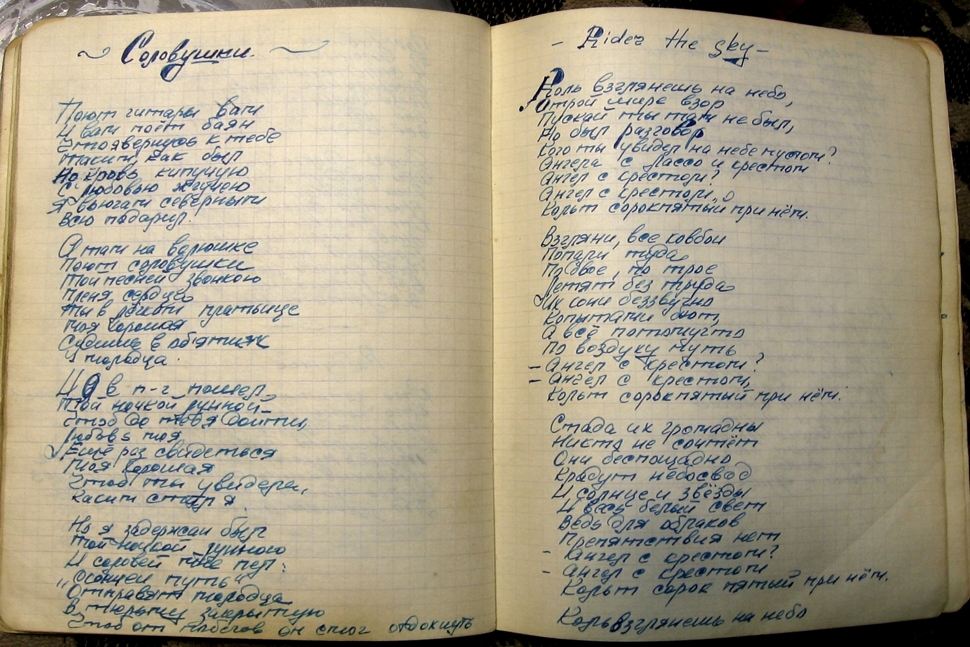 Соловушки
Поют гитары вам
И вам поёт баян
Это я вернусь к тебе
Таким, как был
Но кровь кипучую
С любовью жгучею
Я вьюгам северным
Всю подарил.
А там на волюшке
Поют соловушки
Той песней звонкою
Пленя сердца
Ты в платьице
Моя хорошая
Сидишь в объятиях
У молодца.
И я в п-г пошел
Той ночкой лунной
Чтоб до тебя дойти,
Любовь моя
Ещё раз свидеться
Моя хорошая
Чтоб ты увидела,
Каким стал я
Но я задержан был
Той ночкой лунною
И соловей мне пел:
"Окончен путь"
Отправят молодца
В тюрьму закрытую
Чтоб от побегов он смог отдохнуть
- Rider the sky -
Коль взглянешь на небо,
Открой шире взор
Пускай ты там не был,
Но был разговор
Кого ты увидел на небе пустом?
Ангела с лассо и крестом
Ангел с крестом?
Ангел с крестом,
Кольт сорокпятый при нём.
Взгляни, все ковбои
Попали туда
По двое, по трое
Летят без труда
Их кони беззвучно
Копытами бьют,
А всё потому что
По воздуху путь
- Ангел с крестом?
- Ангел с крестом,
Кольт сорокпятый при нём.
Стада их громадны
Никто не сочтёт
Они беспощадно
Крадут небосвод
И солнце и звёзды
И весь белый свет
Ведь для облаков
Препятствия нет
- Ангел с крестом?
- Ангел с крестом
Кольт сорок пятый при нём.
Коль взглянешь на небо